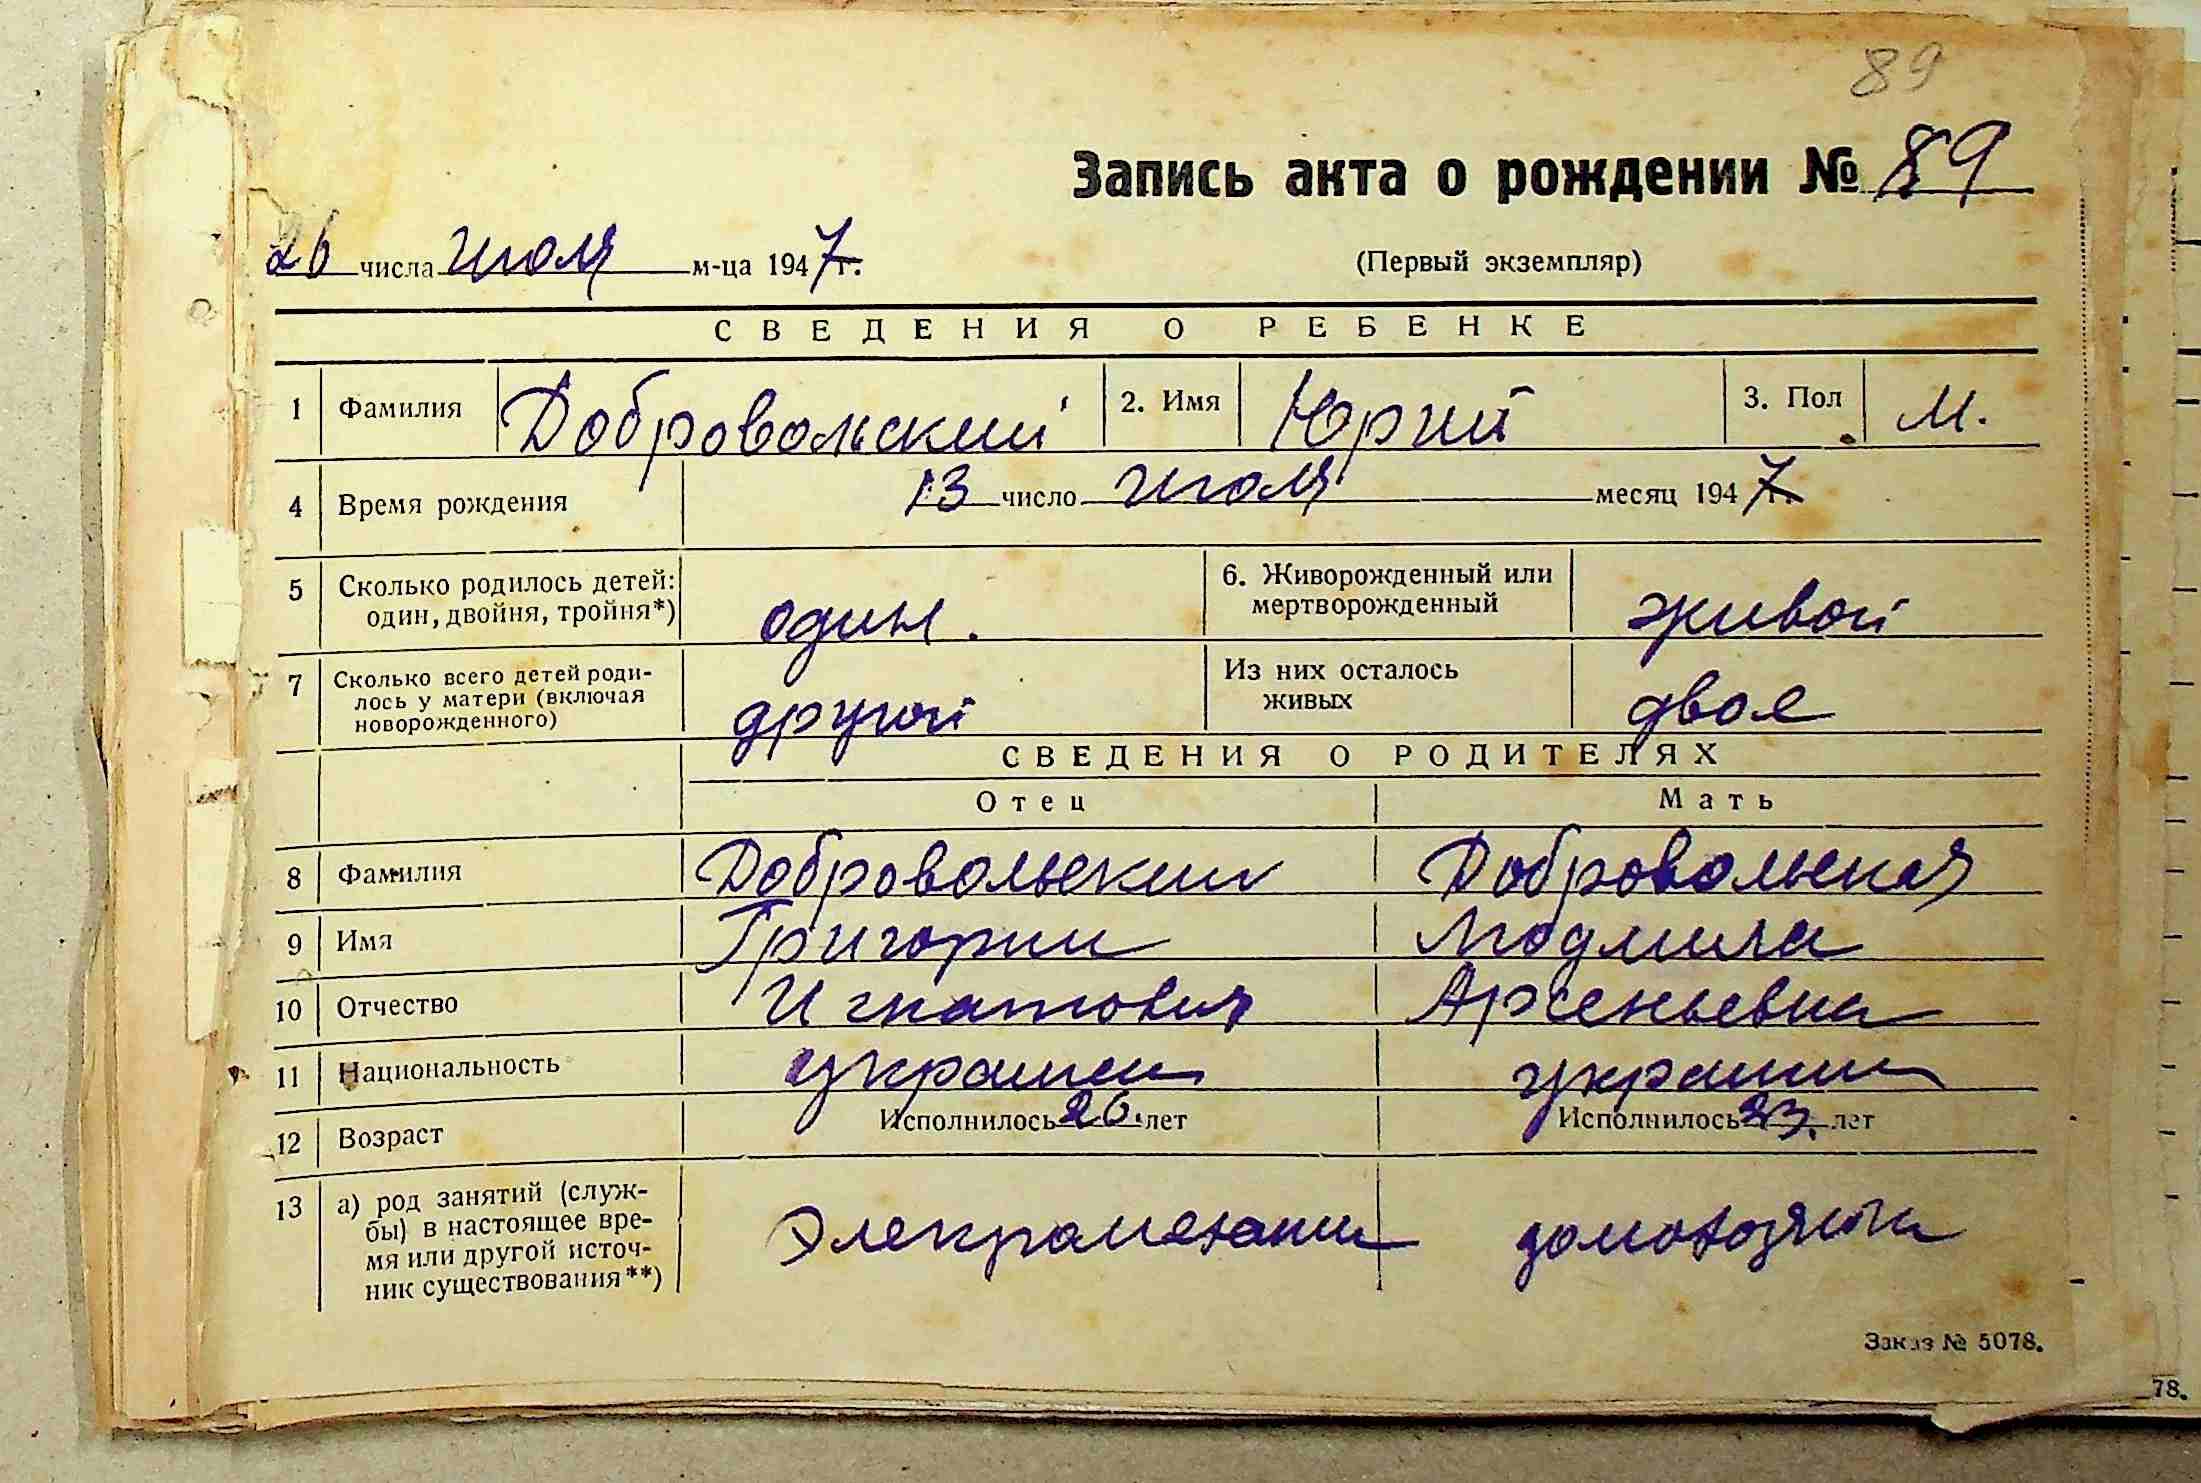 89
Запись акта о рождении № 89
26 числа июля м-ца 1947 г.
(Первый экземпляр)
СВЕДЕНИЯ О РЕБЕНКЕ
1 Фамилия Добровольский 2. Имя Юрий 3. Пол М.
4 Время рождения 13 число июля месяц 1947 г.
5 Сколько родилось детей: один. 6. Живорожденный или живой
один, двойня, тройня*) мертворожденный
7 Сколько всего детей роди- другой Из них осталось двое
лось у матери (включая живых
новорожденного)
СВЕДЕНИЯ О РОДИТЕЛЯХ
Отец Мать
8 Фамилия Добровольский Добровольская
9 Имя Григорий Людмила
10 Отчество Игнатович Арсеньевна
11 Национальность
12 Возраст Исполнилось 26. лет Исполнилось 23. лет
13 а) род занятий (служ-
бы) в настоящее вре-
мя или другой источ-
ник существования**)
Заказ № 5078.
78.